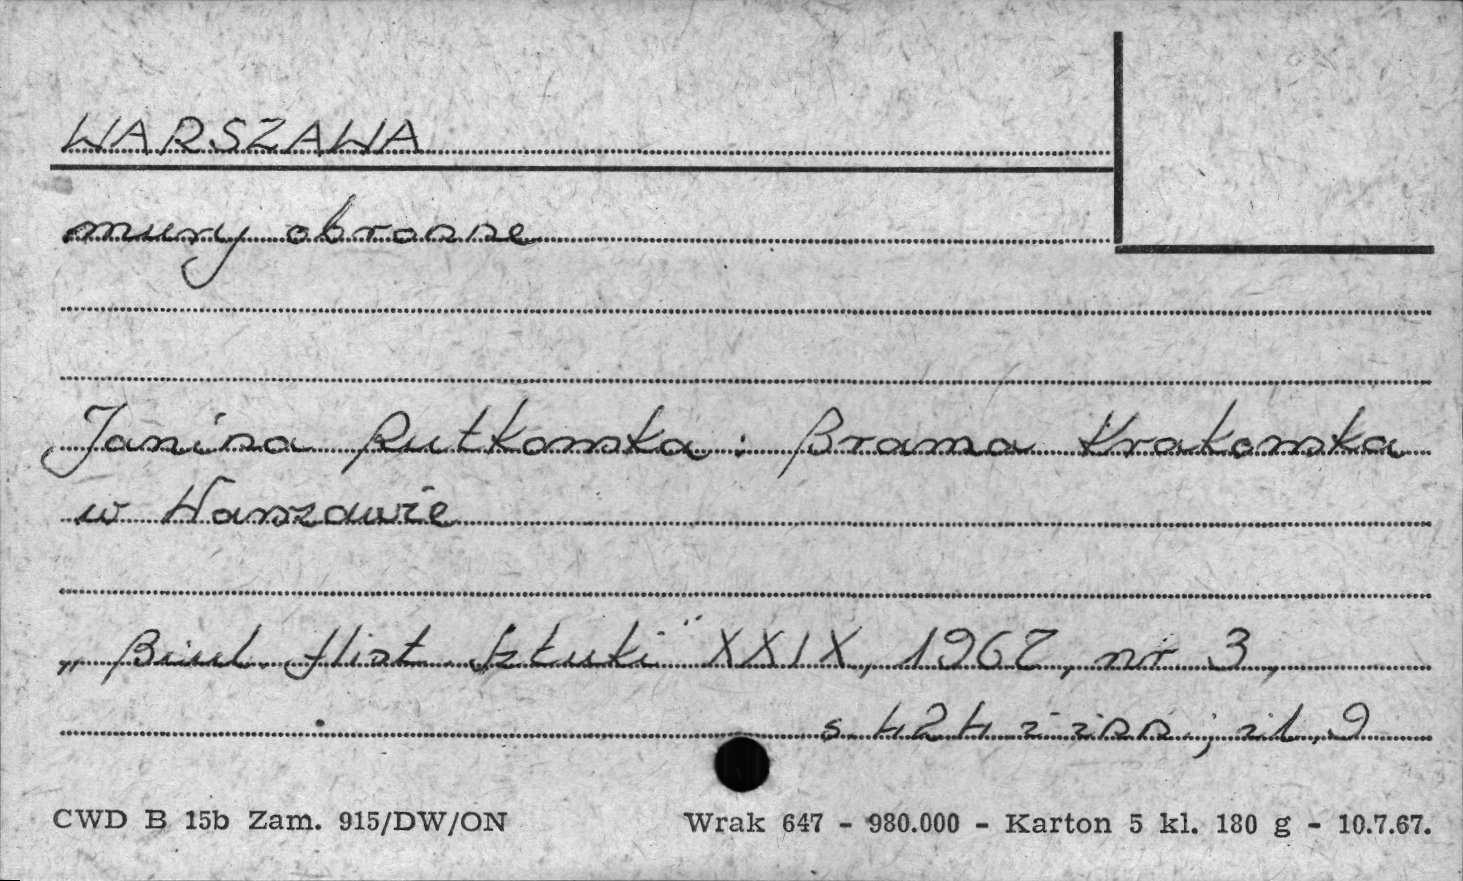 WARSZAWA
mury obronne
Janina Rutkowska: Brama Krakowska
w Warszawie
„Biul. Hist. Sztuki" XXIX, 1967, nr 3,
s. 424 i inn.; il. 9
CWD B 15b Zam. 915/DW/ON Wrak 647 - 980.000 - Karton 5 kl. 180 g - 10.7.67.